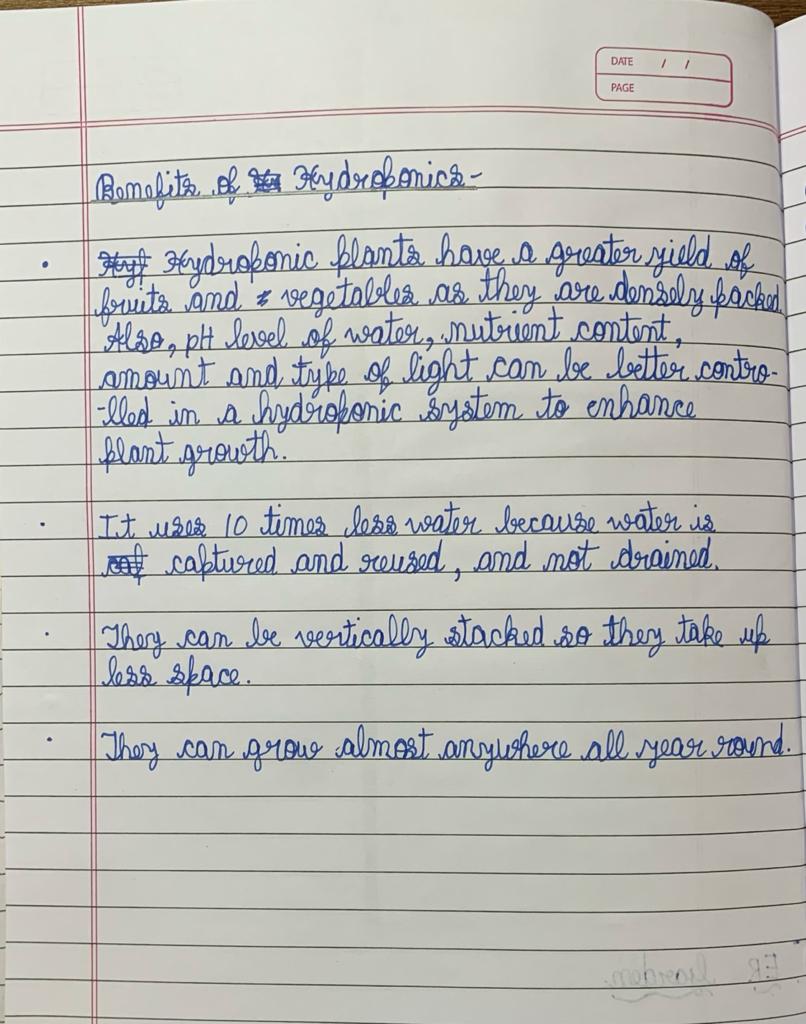 DATE / /
PAGE
Benefits of Hydroponics-
• Hydroponic plants have a greater yield of
fruits and vegetables as they are densely packed.
Also, pH level of water, nutrient content,
amount and type of light can be better contro-
-lled in a hydroponic system to enhance
plant growth.
• It uses 10 times less water because water is
captured and reused, and not drained.
• They can be vertically stacked so they take up
less space.
• They can grow almost anywhere all year round.